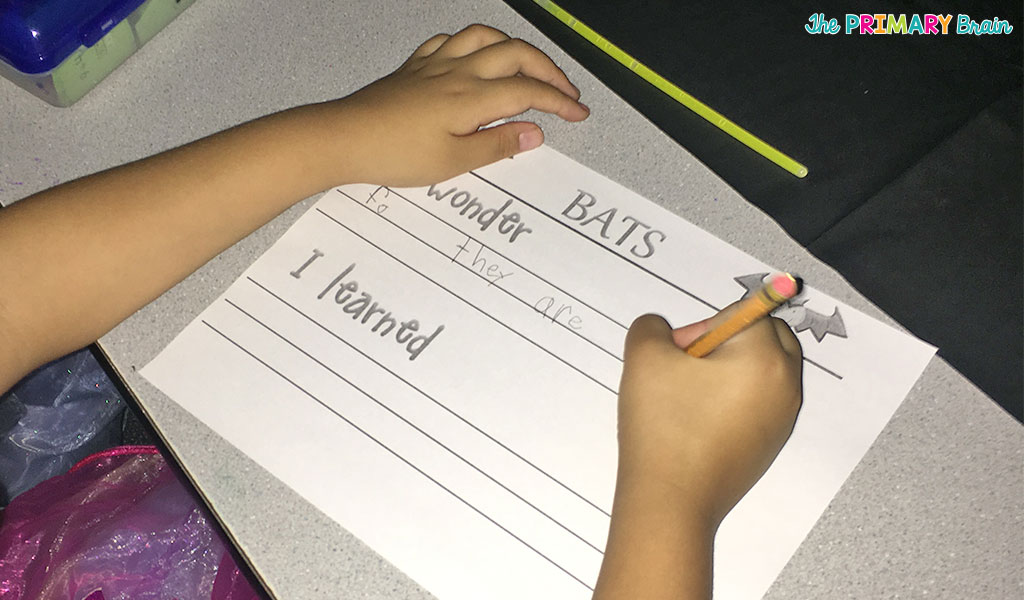 The PRIMARY Brain
BATS
wonder
fo they are
I learned